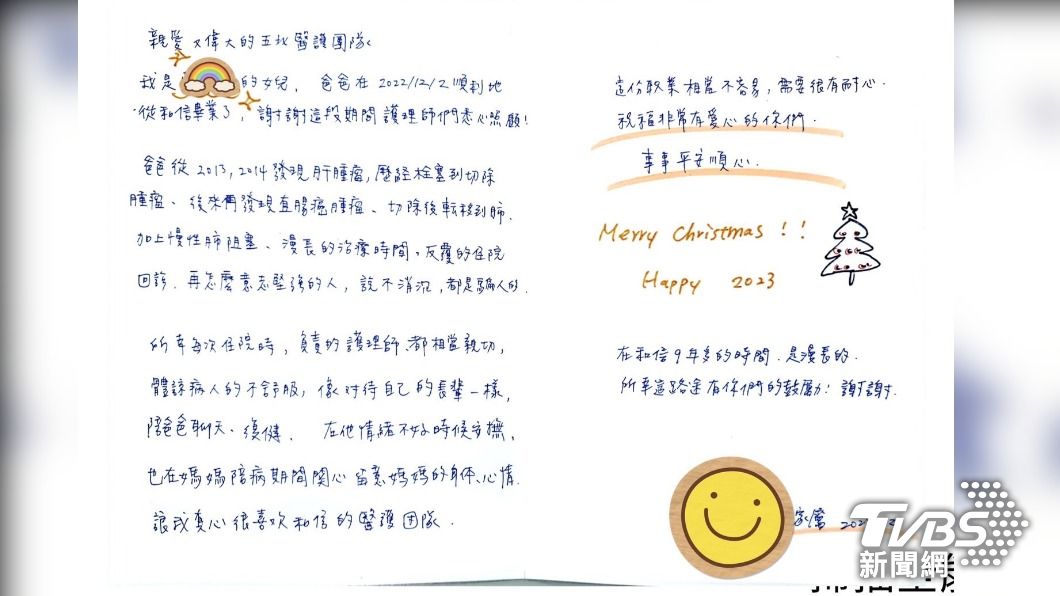 親愛又偉大的五北醫護團隊
我是 的女兒， 爸爸在 2022/12/2 順利地
從和信畢業了，謝謝這段期間護理師們悉心照顧！
爸爸從 2013, 2014 發現肝腫瘤, 歷經栓塞到切除
腫瘤、後來再發現直腸癌腫瘤、切除後転移到肺.
加上慢性肺阻塞、漫長的治療時間。反覆的住院
回診. 再怎麼意志堅強的人，說不消沉，都是騙人的.
所幸每次住院時，負責的護理師、都相當親切，
體諒病人的不舒服，像對待自己的長輩一樣，
陪爸爸聊天、復健． 在他情緒不好時候安撫，
也在媽媽陪病期間關心留意媽媽的身体、心情.
讓我真心很喜歡和信的醫護团隊．
這份職業相當不容易，需要很有耐心．
祝福非常有愛心的你們．
事事平安順心．
Merry Christmas !!
Happy 2023
在和信9年多的時間．是漫長的．
所幸這路途有你們的鼓勵！謝謝．
家屬
TVBS
新聞網